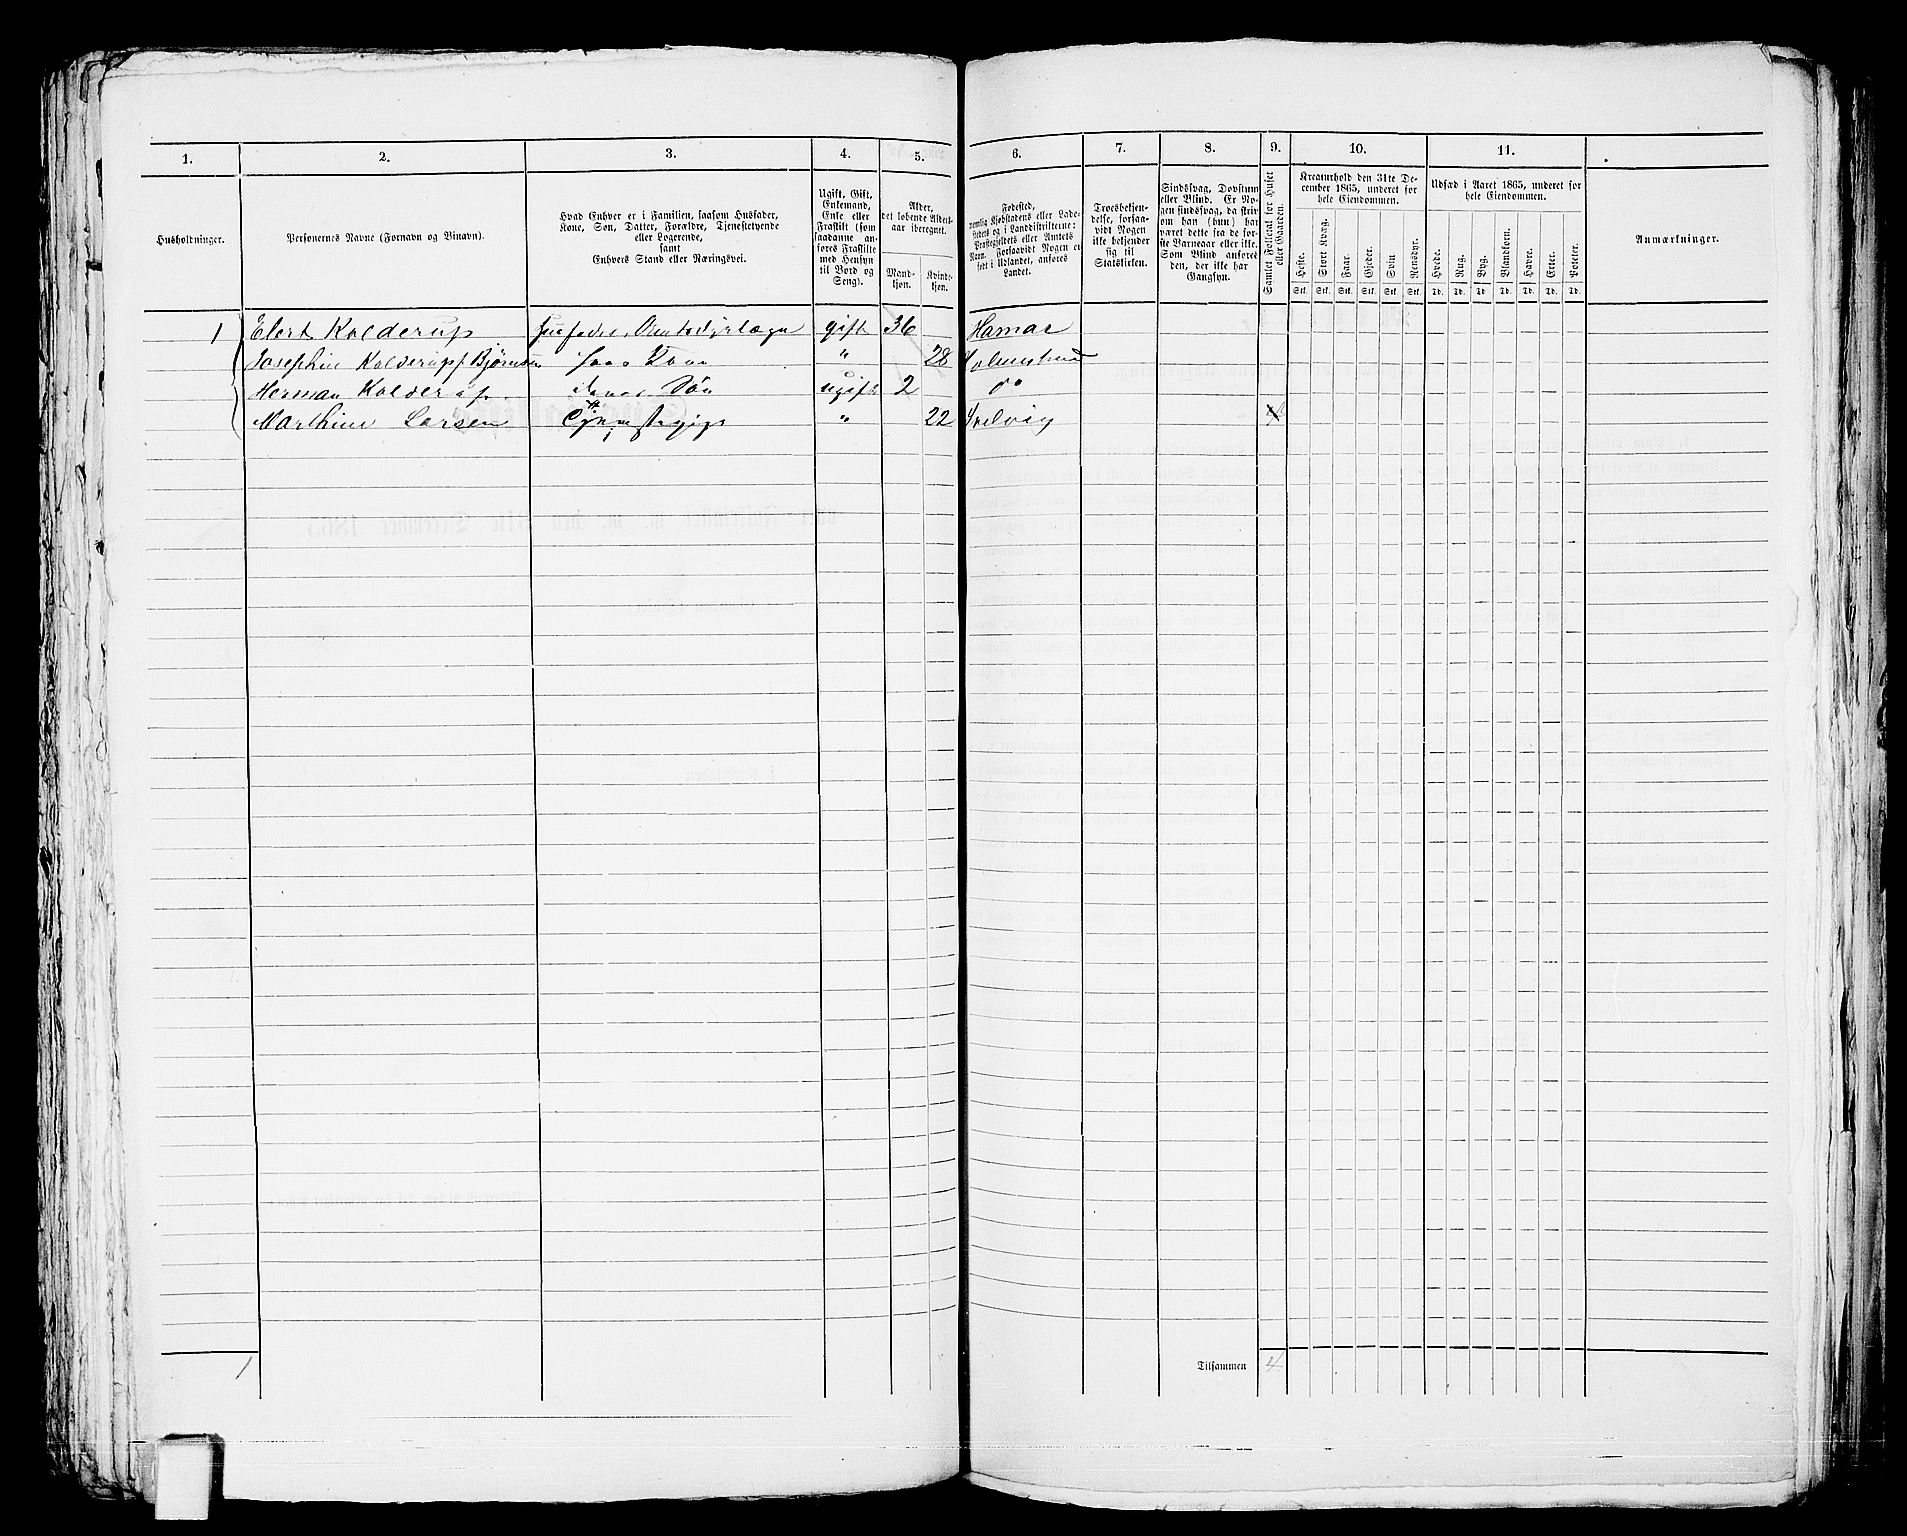 1. 2. 3. 4. 5. 6. 7. 8. 9. 10. 11.
Husholdninger.
Personernes Navne (Fornavn og Binavn).
Hvad Enhver er i Familien, saasom Husfader,
Kone, Søn, Datter, Forældre, Tjenestetyende
eller Logerende,
samt
Enhvers Stand eller Næringsvei.
Ugift, Gift,
Enkemand,
Enke eller
Fraskilt (som
saadanne an-
føres Fraskilte
med Hensyn
til Bord og
Seng).
Alder,
det løbende Alders-
aar iberegnet.
Mand-
kjøn.
Kvinde-
kjøn.
Fødested,
nemlig Kjøbstadens eller Lade-
stedets og i Landdistrikterne:
Præstegjeldets eller Amtets
Navn. Forsaavidt Nogen er
født i Udlandet, anføres
Landet.
Troesbekjen-
delse, forsaa-
vidt Nogen
ikke bekjender
sig til
Statskirken.
Sindssvag, Døvstum
eller Blind. Er No-
gen sindssvag, da skriv
om han (hun) har
været dette fra de før-
ste Barneaar eller ikke.
Som Blind anføres
den, der ikke har
Gangsyn.
Samlet Folketal for Huset
eller Gaarden.
Kreaturhold den 31te De-
cember 1865, underet for
hele Eiendommen.
Heste. Stort Kvæg. Faar. Gjeder. Svin Rensdyr.
Stk. Stk. Stk. Stk. Stk. Stk.
Udsæd i Aaret 1865, underet for
hele Eiendommen.
Hvede. Rug. Byg. Blandkorn. Havre. Erter. Poteter.
Td. Td. Td. Td. Td. Td. Td.
Anmærkninger.
1 Elert Kolderup Husfader, gift 36 Hamar
Josephine Kolderup f. Bjørnsen hans Kone " 28 Holmestrand
Herman Kolderup deres Søn ugift 2 do
Marthine Larsen Tjenestepige " 22 Svelvig 4
1 Tilsammen 4